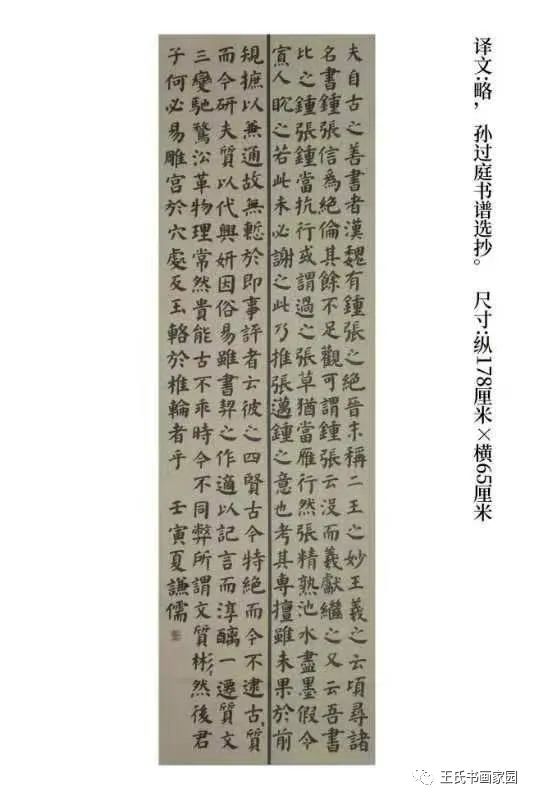 夫自古之善書者漢魏有鍾張之絶晉末稱二王之妙王羲之云頃尋諸
名書鍾張信爲絶倫其餘不足觀可謂鍾張云沒而羲獻繼之又云吾書
比之鍾張鍾當抗行或謂過之張草猶當雁行然張精熟池水盡墨假令
寡人耽之若此未必謝之此乃推張邁鍾之意也考其專擅雖未果於前
規摭以兼通故無慙於即事評者云彼之四賢古今特絶而今不逮古質
而今研夫質以代興妍因俗易雖書契之作適以記言而淳醨一遷質文
三變馳騖沿革物理常然貴能古不乖時今不同弊所謂文質彬然後君
子何必易雕宮於穴處反玉輅於椎輪者乎 壬寅夏謙儒
译文:略，孙过庭书谱选抄。 尺寸:纵178厘米×横65厘米
王氏书画家园